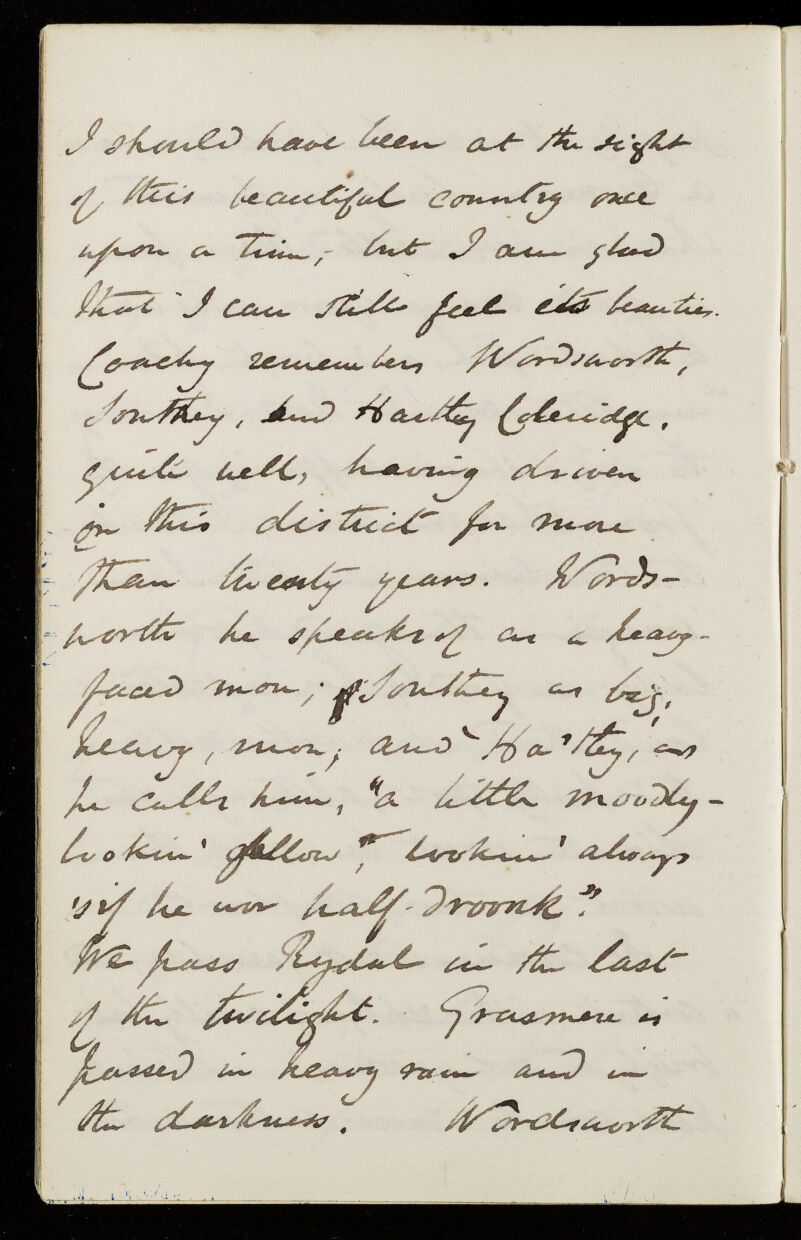 I should have been at the sight
of this beautiful country once
upon a time; but I am glad
that I can still feel its beauties.
Coachy remembers Wordsworth,
Southey, and Hartley Coleridge,
quite well, having driven
in this district for more
than twenty years. Words-
worth he speaks of as a heavy-
faced mon; Southey as big,
heavy, mon; and Ha'tley, as
he calls him, "a little moody-
lookin' fellow", lookin' always
'sif he wor half-droonk".
We pass Rydal in the last
of the twilight. Grasmere is
passed in heavy rain and in
the darkness. Wordsworth